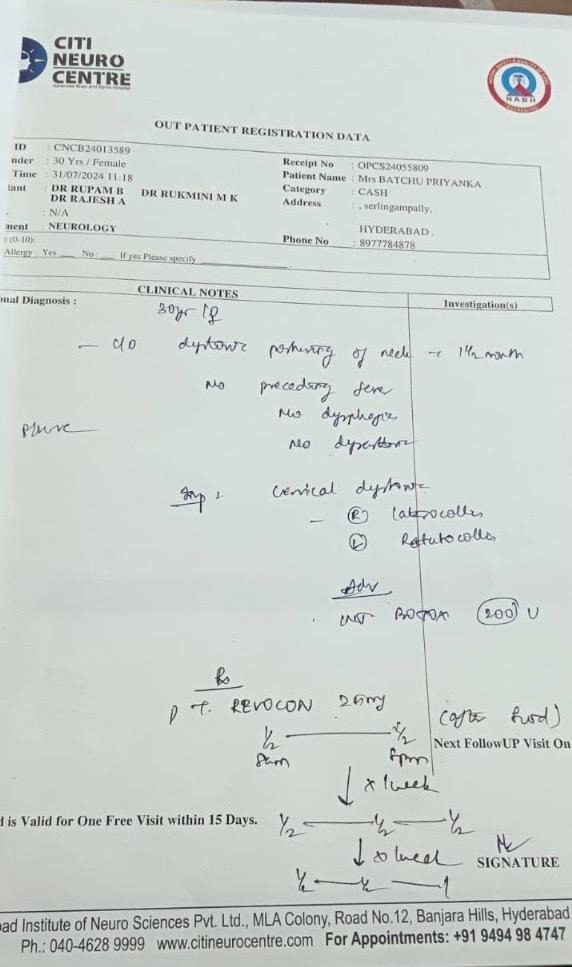 CITI
NEURO
CENTRE
Advanced Brain and Spine Hospital
NABH
OUT PATIENT REGISTRATION DATA
ID : CNCB24013589
nder : 30 Yrs / Female
Time : 31/07/2024 11:18
tant : DR RUPAM B DR RUKMINI M K
DR RAJESH A
: N/A
ment : NEUROLOGY
: (0-10):
Allergy Yes ___ No ___ If yes Please specify
Receipt No : OPCS24055809
Patient Name : Mrs BATCHU PRIYANKA .
Category : CASH
Address : , serlingampally,
HYDERABAD .
Phone No : 8977784878
CLINICAL NOTES
onal Diagnosis :
Investigation(s)
30yr
- c/o dystonic posturing of neck 1½ month
No preceding fever
No dysphagia
No
Imp : Cervical dystonia
- (R) laterocollis
(L) Rotatocollis
Adv
INJ BOTOX 200 U
Rx
T. REVOCON 25mg (after food)
½ ½
8am 8pm
Next FollowUP Visit On
↓ x 1 week
d is Valid for One Free Visit within 15 Days.
½ ½ ½
↓ x 1 week
SIGNATURE
½ ½ 1
bad Institute of Neuro Sciences Pvt. Ltd., MLA Colony, Road No.12, Banjara Hills, Hyderabad
Ph.: 040-4628 9999 www.citineurocentre.com For Appointments: +91 9494 98 4747